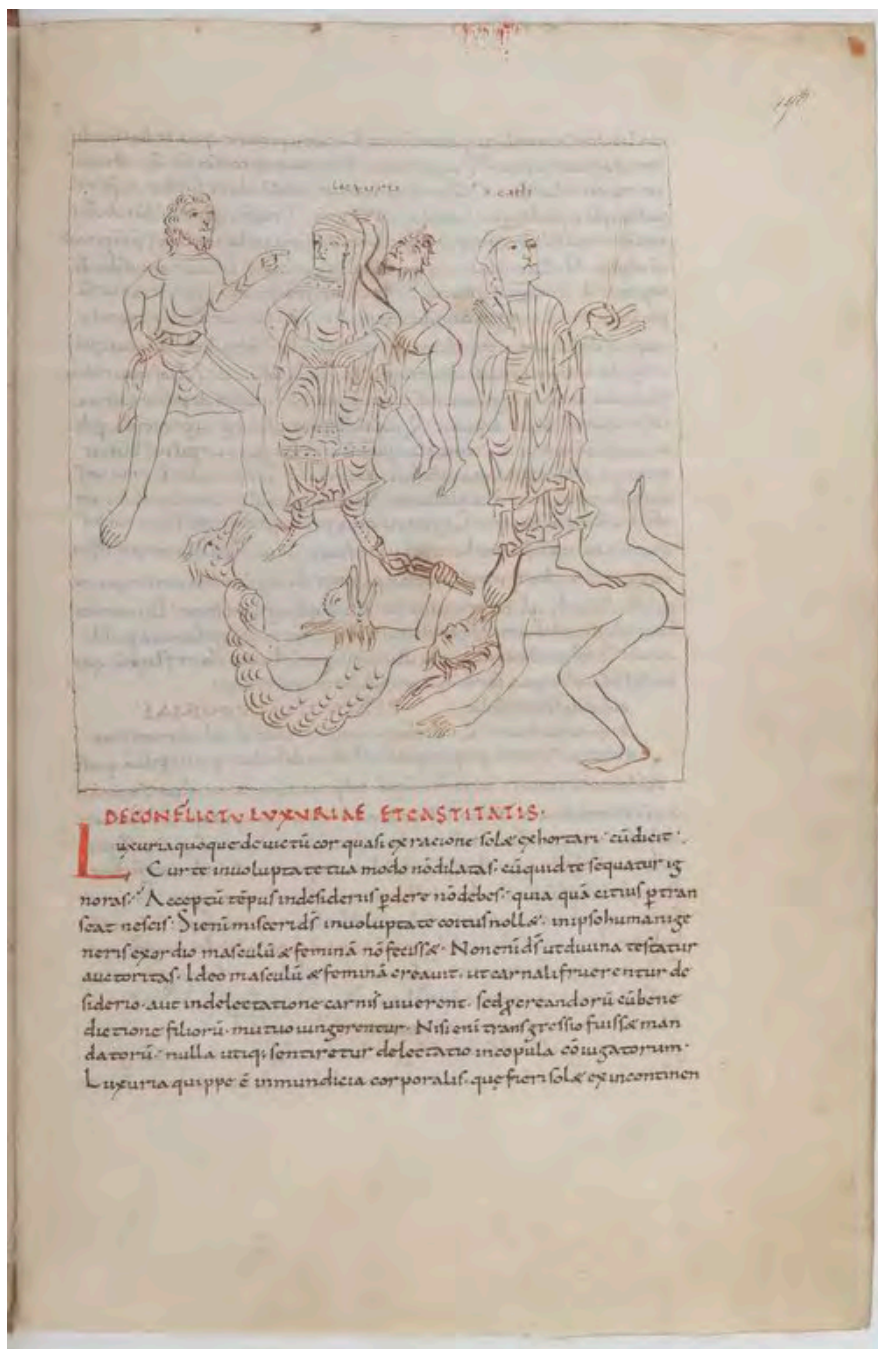 luxuria castit
DECONFLICTU LUXURIAE ETCASTITATIS·
Luxuria quoque deuictū cor quasi ex racione solæ exhortari· cū dicit·
Cur te inuoluptate tua modo nō dilatas· cū quid te sequatur ig
noras· Acceptū tēpus indesideriis ꝑdere nō debes· quia quā citius ꝑtran
seat nescis· Si enī misceri d̄s inuoluptate coitus nollæ· inipso humani ge
neris exordio masculū æ feminā nō fecissæ· Non enī d̄s ut diuina testatur
auctoritas· Ideo masculū æ feminā creauit· ut carnali fruerentur de
siderio· aut indelectatione carnis uiuerent· sed ꝓcreandorū cū bene
dictione filiorū· mutuo iungerentur· Nisi enī transgressio fuissæ man
datorū· nulla utiq; sentiretur delectatio incopula cōiugatorum·
Luxuria quippe ē inmundicia corporalis· quę fieri solæ ex incontinen